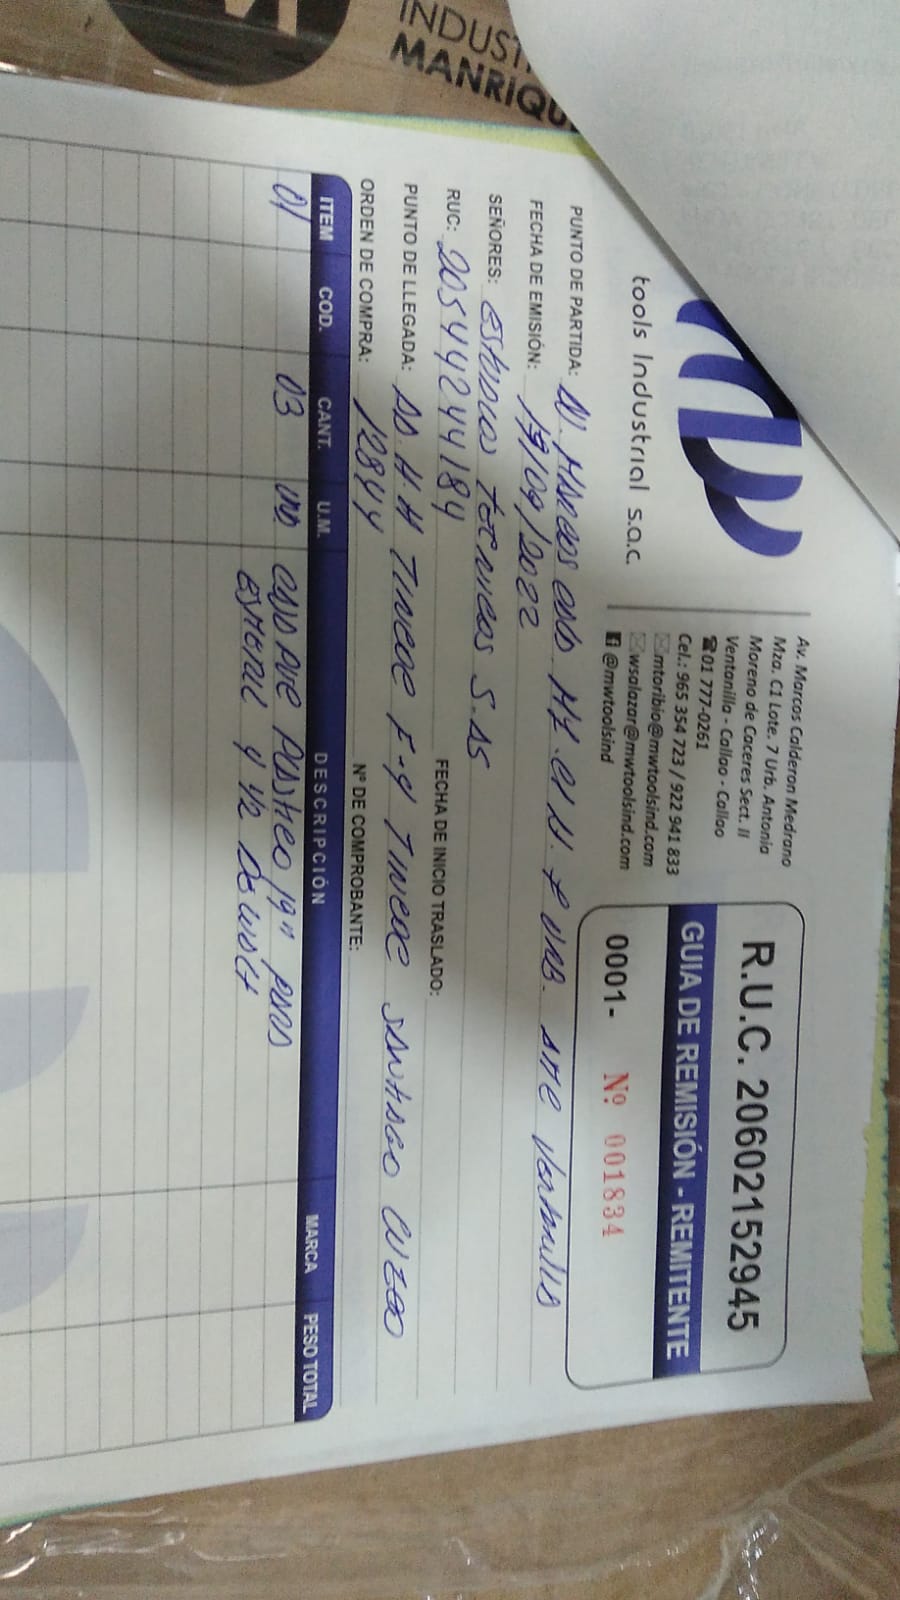 INDUST
MANRIQU
tools Industrial s.a.c.
Av. Marcos Calderon Medrano
Mza. C1 Lote. 7 Urb. Antonia
Moreno de Caceres Sect. II
Ventanilla - Callao - Callao
01 777-0261
Cel.: 965 354 723 / 922 941 833
mtoribio@mwtoolsind.com
wsalazar@mwtoolsind.com
@mwtoolsind
R.U.C. 20602152945
GUIA DE REMISIÓN - REMITENTE
0001- Nº 001834
PUNTO DE PARTIDA: AV. MARCOS
FECHA DE EMISIÓN: 19/09/2022
SEÑORES: TECNICOS S.AS
RUC: 20544244184 FECHA DE INICIO TRASLADO:
PUNTO DE LLEGADA: AA.HH TIWCOE F-4 TIWCOE SANTIAGO CUZCO
ORDEN DE COMPRA: 12844 Nº DE COMPROBANTE:
ITEM COD. CANT. U.M. DESCRIPCIÓN MARCA PESO TOTAL
01 03 19" PARA
Y 1/2